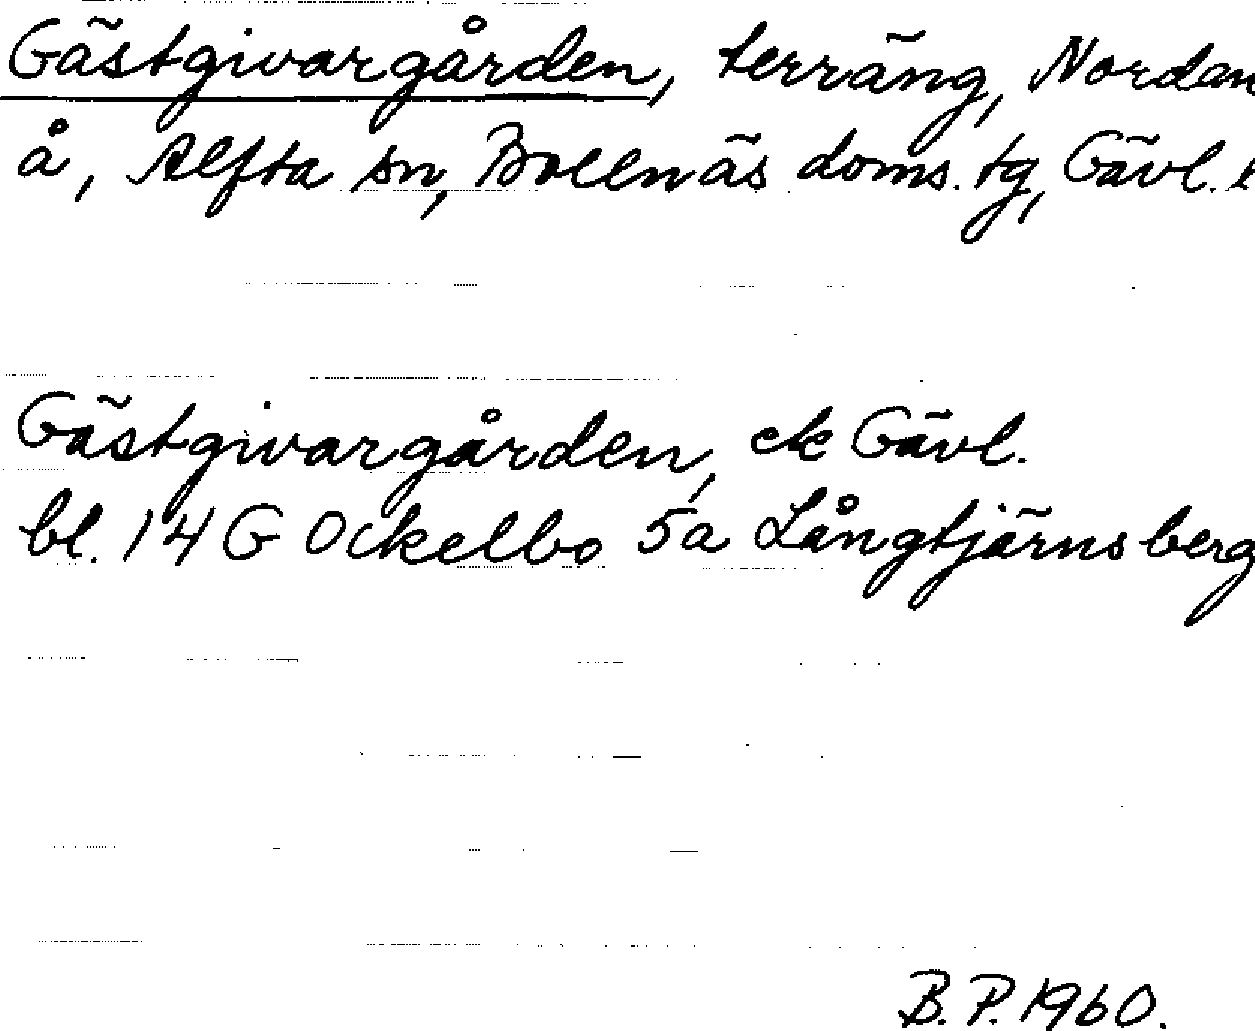 Gästgivargården, terräng, Nordan
å, Alfta sn, Bollnäs doms. tg, Gävl. l
Gästgivargården, ek Gävl.
bl. 14 G Ockelbo 5a Långtjärnsberg
B. P. 1960.